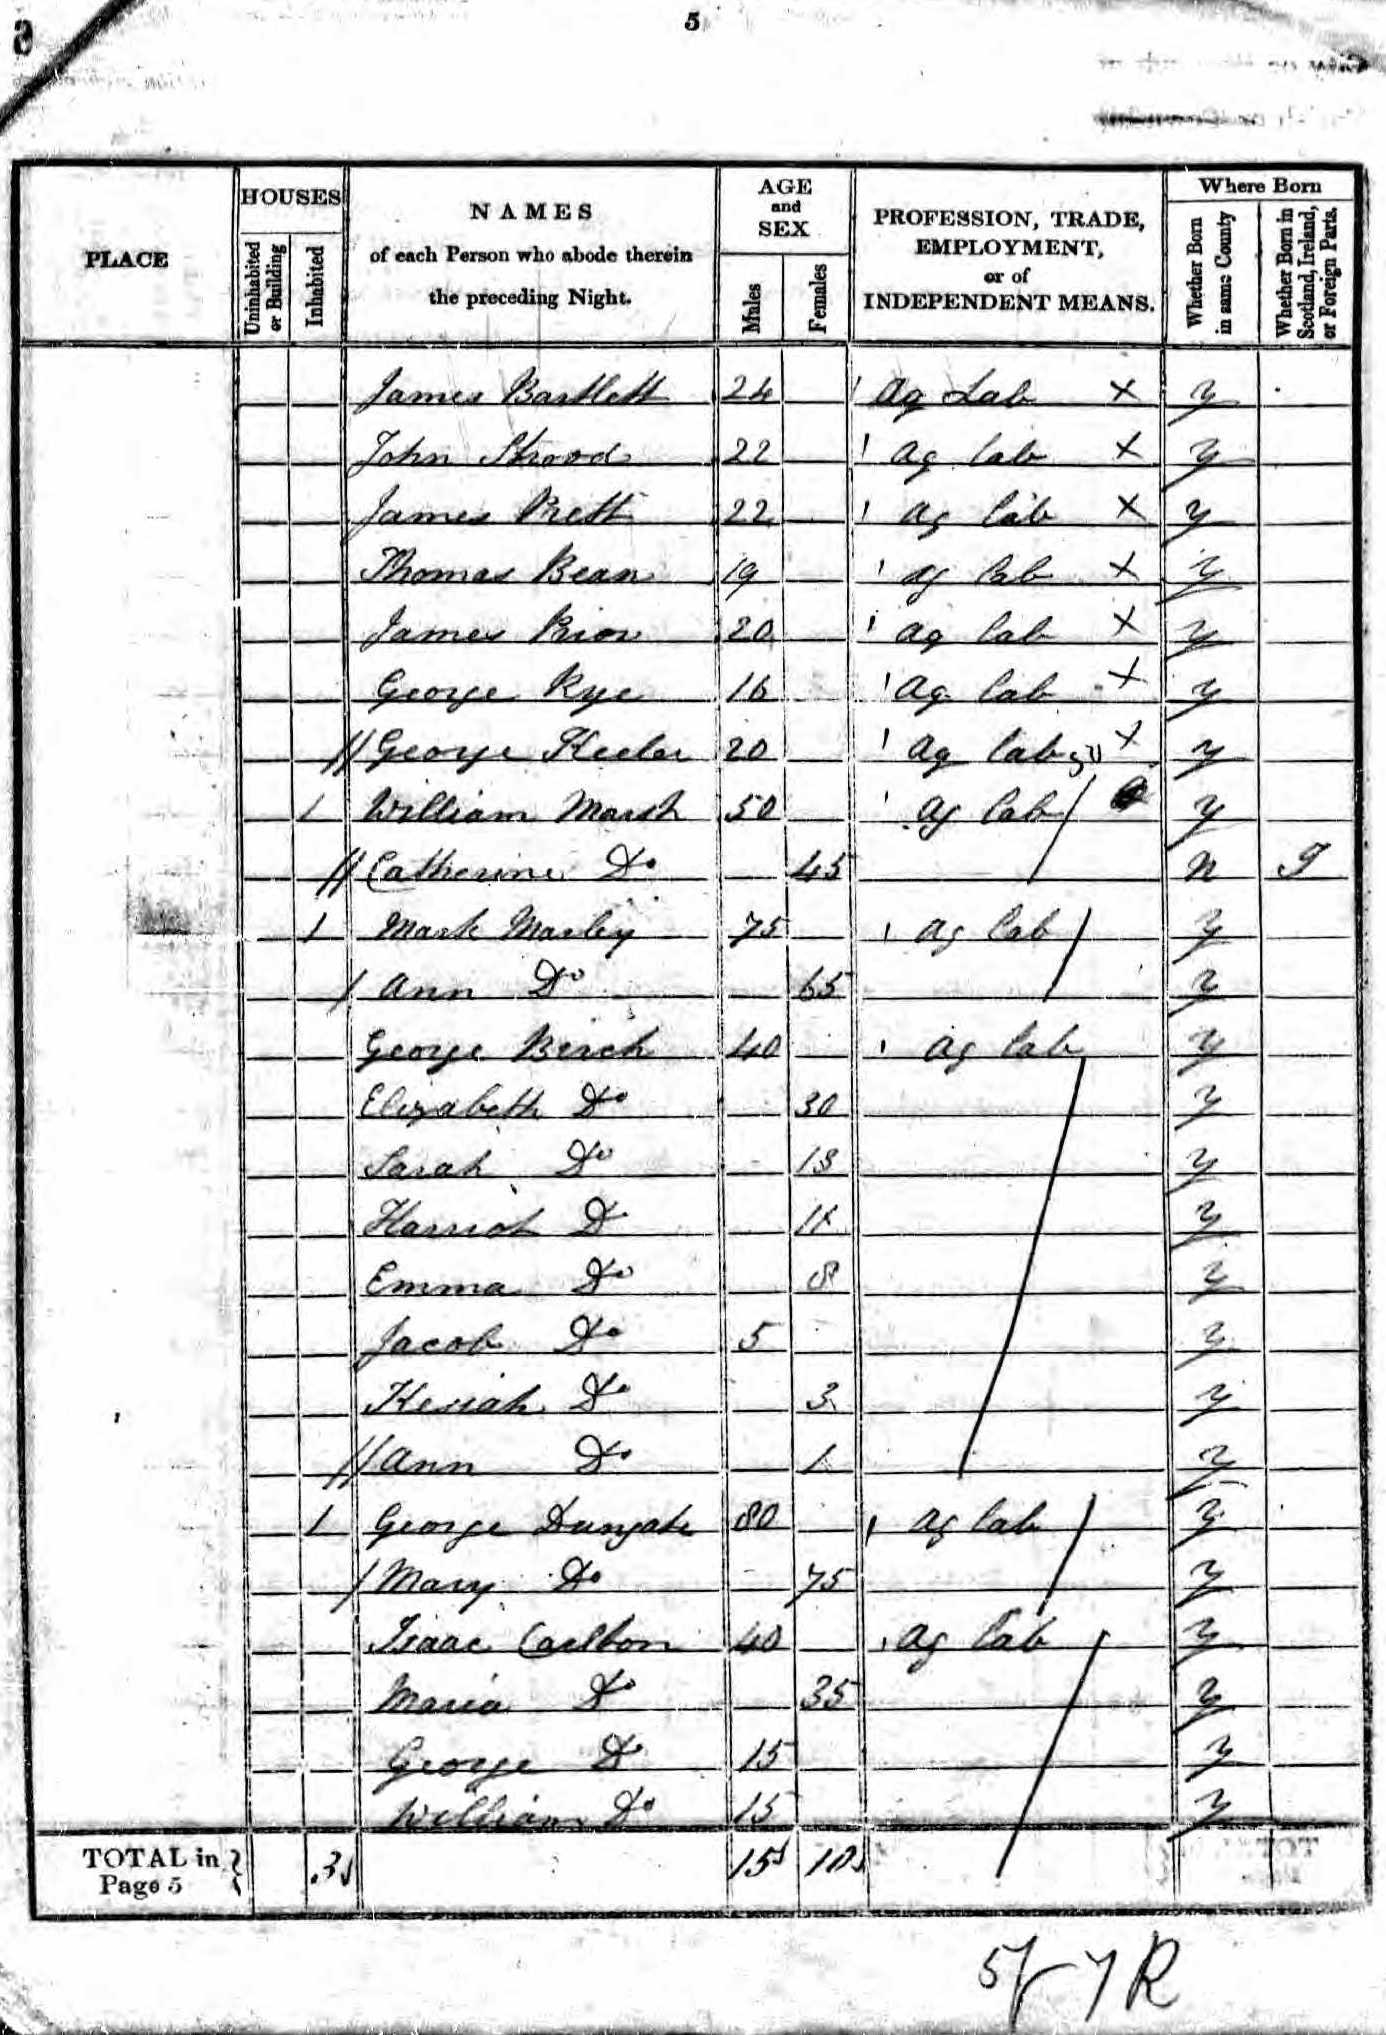 5
PLACE
HOUSES
Uninhabited or Building
Inhabited
NAMES
of each Person who abode therein
the preceding Night.
AGE
and
SEX
Males
Females
PROFESSION, TRADE,
EMPLOYMENT,
or of
INDEPENDENT MEANS.
Where Born
Whether Born in same County
Whether Born in Scotland, Ireland, or Foreign Parts.
James Bartlett 24 Ag Lab X y
John Strood 22 Ag lab X y
James Brett 22 Ag lab X y
Thomas Bean 19 Ag lab X y
James Prior 20 Ag lab X y
George Rye 16 Ag lab X y
// George Keeler 20 Ag lab X y
1 William Marsh 50 Ag lab y
// Catherine Do 45 n I
1 Mark Marley 75 Ag lab y
/ Ann Do 65 y
George Birch 40 Ag lab y
Elizabeth Do 30 y
Sarah Do 13 y
Harriot Do 11 y
Emma Do 8 y
Jacob Do 5 y
Kesiah Do 3 y
// Ann Do 1 y
1 George Dungate 80 Ag lab y
/ Mary Do 75 y
Isaac 40 Ag lab y
Maria Do 35 y
George Do 15 y
William Do 15 y
TOTAL in Page 5 3 15 10